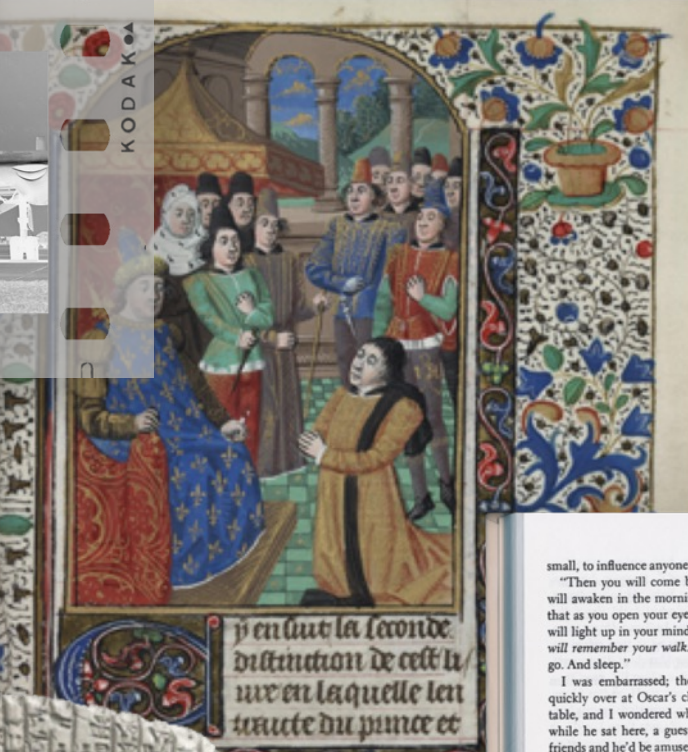 KODAK
y en suit la seconde
distinction de cest li
ure en laquelle len
traicte du prince et
small, to influence anyone
"Then you will come b
will awaken in the morni
that as you open your eye
will light up in your mind
will remember your walk.
go. And sleep."
I was embarrassed; the
quickly over at Oscar's cl
table, and I wondered wh
while he sat here, a gues
friends and he'd be amuse